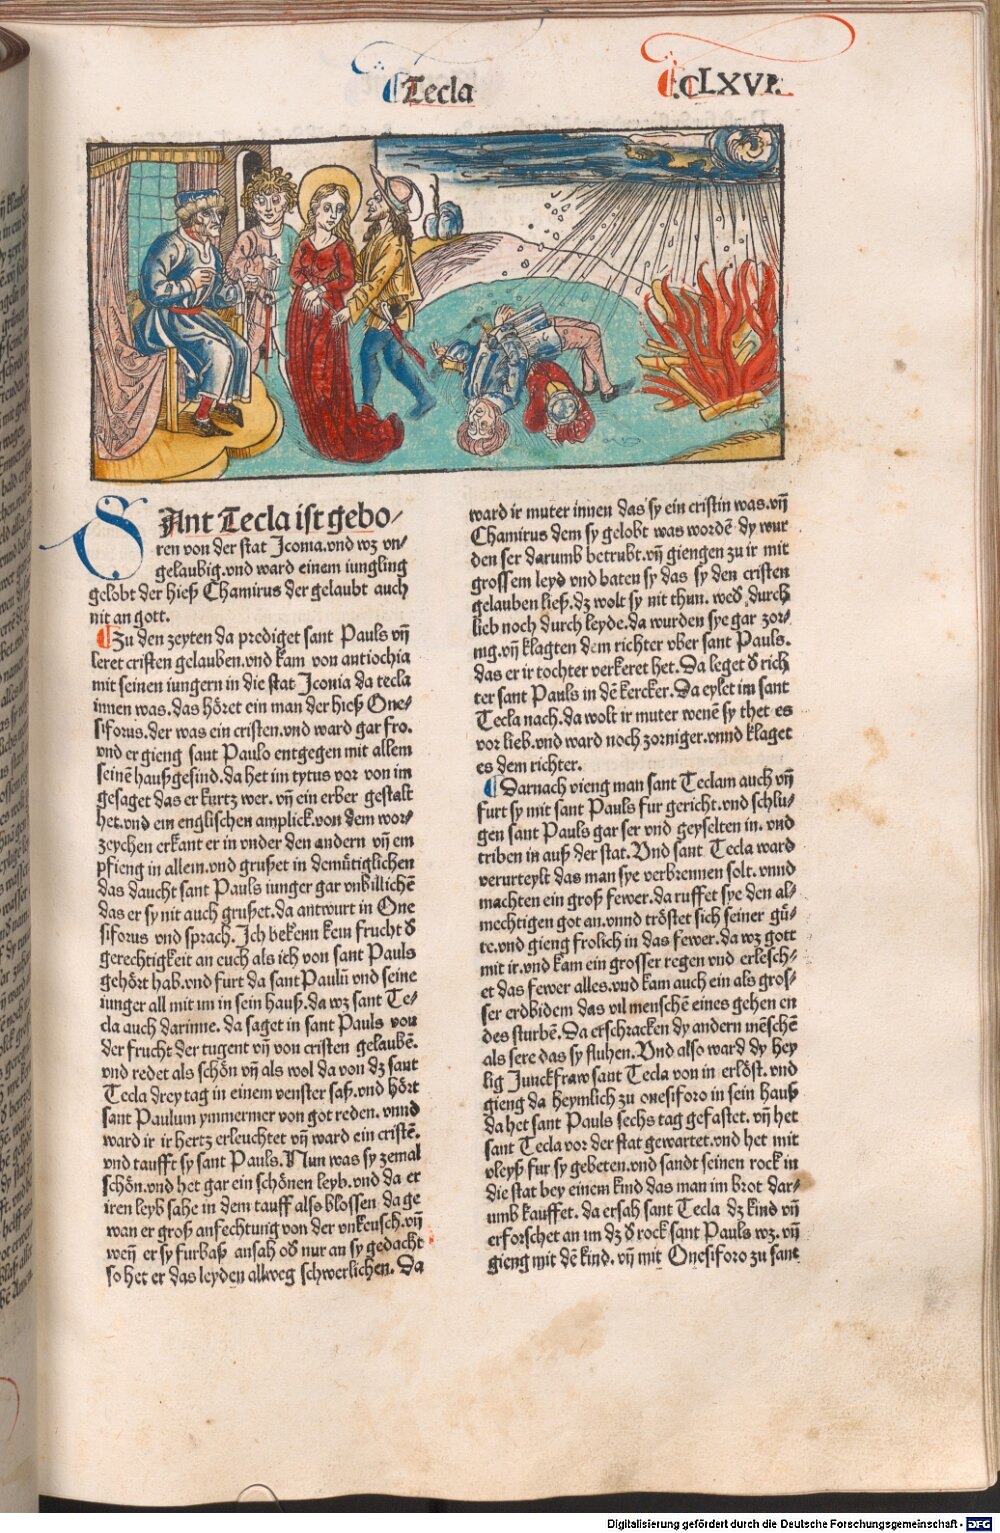 Tecla
CLXVI.
SAnt Tecla ist gebo⸗
ren von der stat Jconia.vnd wz vn⸗
gelaubig.vnd ward einem iungling
gelobt der hieß Chamirus der gelaubt auch
nit an gott.
Zu den zeyten da prediget sant Pauls vn̄
leret cristen gelauben.vnd kam von antiochia
mit seinen iungern in die stat Jconia da tecla
innen was.das höret ein man der hieß One⸗
siforus.der was ein cristen.vnd ward gar fro.
vnd er gieng sant Paulo entgegen mit allem
seinē haußgesind.da het im tytus vor von im
gesaget das er kurtz wer. vn̄ ein erber gestalt
het.vnd ein englischen amplick.von dem wor⸗
zeychen erkant er in vnder den andern vn̄ em
pfieng in allein.vnd grußet in demütiglichen
das daucht sant Pauls iunger gar vnbillichē
das er sy nit auch grußet.da antwurt in One
siforus vnd sprach.Ich bekenn kein frucht d̕
gerechtigkeit an euch als ich von sant Pauls
gehört hab.vnd furt da sant Paulū vnd seine
iunger all mit im in sein hauß.da wz sant Te⸗
cla auch darinne. da saget in sant Pauls von
der frucht der tugent vn̄ von cristen gelaubē.
vnd redet als schön vn̄ als wol da von dz sant
Tecla drey tag in einem venster saß.vnd hört
sant Paulum ymmermer von got reden. vnnd
ward ir ir hertz erleuchtet vn̄ ward ein cristē.
vnd taufft sy sant Pauls. Nun was sy zemal
schön.vnd het gar ein schönen leyb.vnd da er
iren leyb sahe in dem tauff alss blossen da ge
wan er groß anfechtung von der vnkeusch.vn̄
wen̄ er sy furbaß ansah od̕ nur an sy gedacht
so het er das leyden allweg schwerlichen. Da
ward ir muter innen das sy ein cristin was.vn̄
Chamirus dem sy gelobt was wordē dy wur
den ser darumb betrubt.vn̄ giengen zu ir mit
grossem leyd vnd baten sy das sy den cristen
gelauben ließ.dz wolt sy nit thun. wed̕ durch
lieb noch durch leyde.da wurden sye gar zor⸗
nig.vn̄ klagten dem richter vber sant Pauls.
das er ir tochter verkeret het.Da leget d̕ rich
ter sant Pauls in dē kercker.Da eylet im sant
Tecla nach.da wolt ir muter wenē sy thet es
vor lieb.vnd ward noch zorniger.vnnd klaget
es dem richter.
Darnach vieng man sant Teclam auch vn̄
furt sy mit sant Pauls fur gericht.vnd schlu⸗
gen sant Pauls gar ser vnd geyselten in. vnd
triben in auß der stat.Vnd sant Tecla ward
verurteylt das man sye verbrennen solt. vnnd
machten ein groß fewer.da ruffet sye den al⸗
mechtigen got an.vnnd tröstet sich seiner gü⸗
te.vnd gieng frolich in das fewer.da wz gott
mit ir.vnd kam ein grosser regen vnd erlesch⸗
et das fewer alles.vnd kam auch ein als gros⸗
ser erdbidem das vil menschē eines gehen en
des sturbē.Da erschracken dy andern mēschē
als sere das sy fluhen.Vnd also ward dy hey
lig Junckfraw sant Tecla von in erlöst. vnd
gieng da heymlich zu onesiforo in sein hauß
da het sant Pauls sechs tag gefastet. vn̄ het
sant Tecla vor der stat gewartet.vnd het mit
vleyß fur sy gebeten.vnd sandt seinen rock in
die stat bey einem kind das man im brot dar⸗
umb kauffet. da ersah sant Tecla dz kind vn̄
erforschet an im dz d̕ rock sant Pauls wz. vn̄
gieng mit dē kind. vn̄ mit Onesiforo zu sant
Digitalisierung gefördert durch die Deutsche Forschungsgemeinschaft - DFG